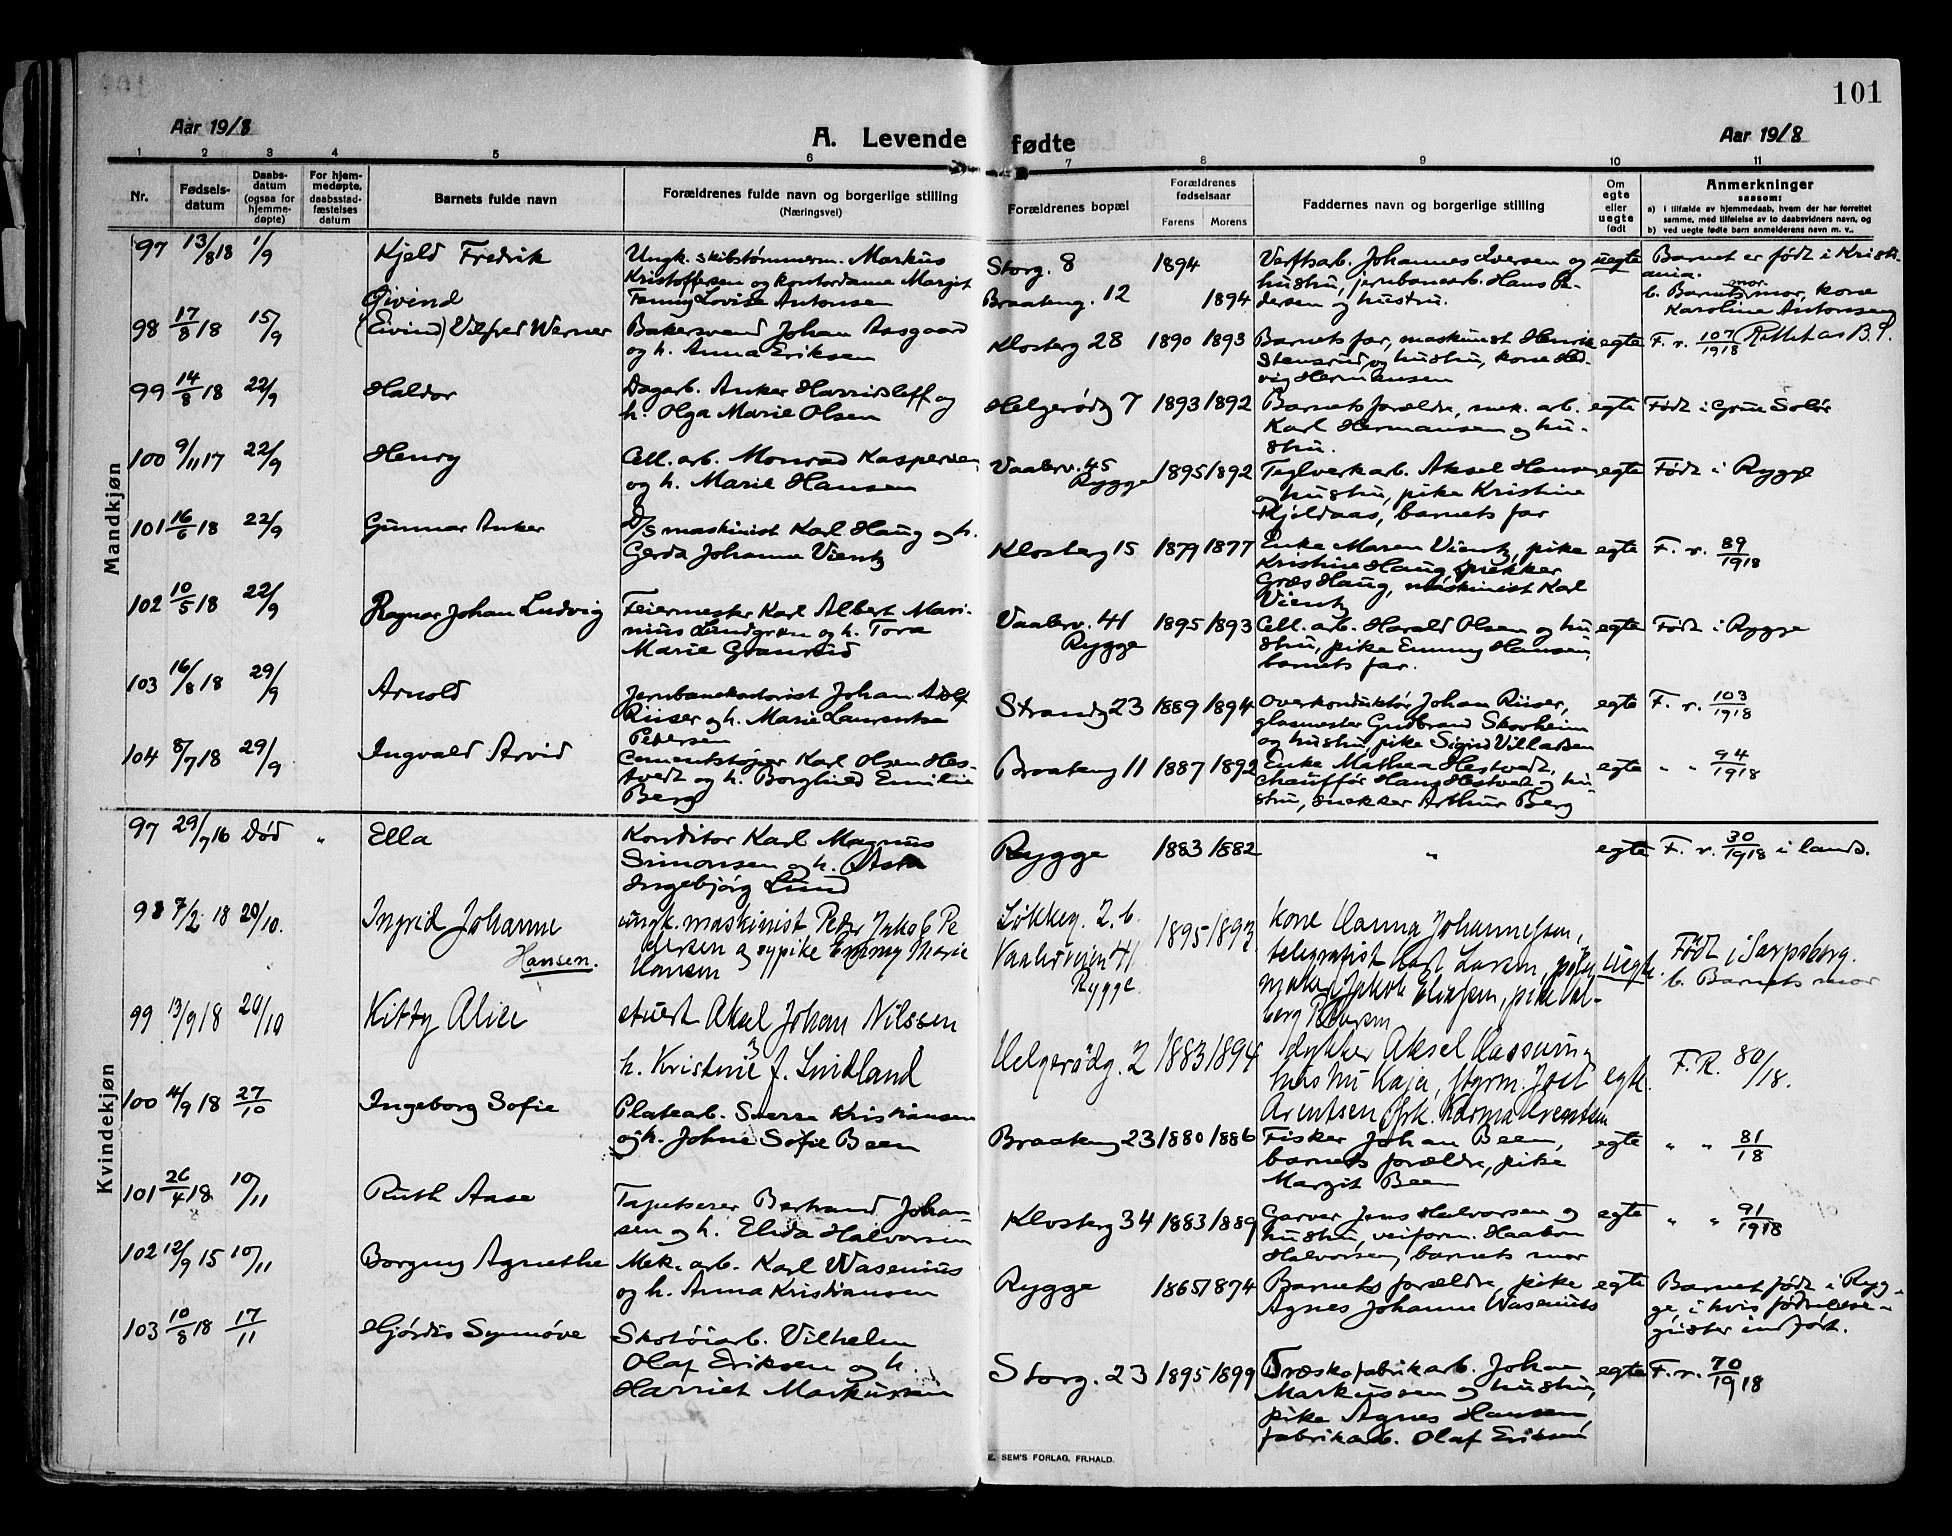 101
Aar 1918
A. Levende fødte
Aar 1918
1 2 3 4 5 6 7 8 9 10 11
Nr.
Fødsels-
datum
Daabs-
datum
(ogsaa for
hjemme-
døpte)
For hjem-
medøpte,
daabsstad-
fæstelses
datum
Barnets fulde navn
Forældrenes fulde navn og borgerlige stilling
(Næringsvei)
Forældrenes bopæl
Forældrenes
fødselsaar
Farens Morens
Faddernes navn og borgerlige stilling
Om
egte
eller
uegte
født
Anmerkninger
saasom:
a) i tilfælde av hjemmedaab, hvem der har forrettet
samme, med tilføielse av to daabsvidners navn, og
b) ved uegte fødte barn anmelderens navn m. v.
Mandkjøn
97 13/8 18 1/9
Kjeld Fredrik
Ungk. skibstømmerm. Markus
Kristoffersen og kontordame Margit
Fanny Lovise Antonsen
Storg. 8
Braateng. 12
1894
1894
Verftsarb. Johannes Iversen og
hustru, jernbanearb. Hans Pe-
dersen og hustru.
uegte
Barnet er født i Kristi-
ania.
b. Barnets mor, kone
Karoline Antonsen
98 17/8 18 15/9
Øivind
(Eivind) Vilfred Werner
Bakersvend Johan Aasgaard
og h. Anna Eriksen
Klosterg 28 1890 1893
Barnets far, maskinist Henrik
Stensrud og hustru, kone Hed-
vig Hermansen
egte
F. r. 107/1918 Rettet as B.P.
99 14/8 18 22/9
Haldor
Dagarb. Anker Harridsleff og
h. Olga Marie Olsen
Helgerødg 7 1893 1892
Barnets forældre, mek. arb.
Karl Hermansen og hu-
stru.
egte
Født i Grue Solør
100 9/11 17 22/9
Henry
Cell. arb. Monrad Kaspersen
og h. Marie Hansen
Vaalerv. 45
Rygge
1895 1892
Teglverkarb. Aksel Hansen
og hustru, pike Kristine
Kjeldaas, barnets far
egte
Født i Rygge
101 16/6 18 22/9
Gunnar Anker
D/s maskinist Karl Haug og h.
Gerda Johanne Vientz
Klosterg 15 1879 1877
Enke Maren Vientz, pike
Kristine Haug, snekker
Græs Haug, maskinist Karl
Vientz
egte
F. r. 89/1918
102 10/5 18 22/9
Ragnar Johan Ludvig
Feiermester Karl Albert Mari-
nius Lundgren og h. Tora
Marie Granerud
Vaalerv. 41
Rygge
1895 1893
Cell. arb. Harald Olsen og hu
stru, pike Emmy Hansen,
barnets far.
egte
Født i Rygge
103 16/8 18 29/9
Arnold
Jernbanekontorist Johan Adolf
Riiser og h. Marie Laurentse
Petersen
Strandg 23 1889 1894
Overkonduktør Johan Riiser,
glasmester Gudbrand Skorheim
og hustru, pike Sigrid Villadsen
egte
F. r. 103/1918
104 8/7 18 29/9
Ingvald Arvid
Cementstøper Karl Olsen Hes-
tvedt og h. Borghild Emilie
Berg
Braateng 11 1887 1892
Enke Mathea Hestvedt,
chauffør Hans Hestvedt og hu-
stru, snekker Arthur Berg
egte
" " 94/1918
Kvindekjøn
97 29/7 16 Død "
Ella
Konditor Karl Magnus
Simonsen og h. Asta
Ingebjørg Lund
Rygge 1883 1882
"
egte
F. r. 30/1918 i lands.
98 7/2 18 20/10.
Ingrid Johanne
Hansen.
ungk. maskinist Peder Jakob Pe
dersen og sypike Emmy Marie
Hansen
Løkkeg. 2. b.
Vaalerveien 41
Rygge.
1895 1893
kone Hanna Johannessen,
telegrafist Karl Larsen,
pike Val-
borg Pedersen
uegte.
Født i Sarpsborg.
b. Barnets mor
99 13/9 18 20/10
Kitty Alice
stuert Aksel Johan Nilssen
h. Kristine J. Lindland
Helgerødg. 2 1883 1894
dykker Aksel Rassum og
hustru Kaja, styrm. Jost
Arentsen, frk. Karma Arentsen
egte.
F. R. 80/18.
100 14/9 18 27/10
Ingeborg Sofie
Platearb. Sverre Kristiansen
og h. Johne Sofie Been
Braateng 23 1880 1886
Fisker Johan Been,
barnets forældre, pike
Margit Been
egte
" " 81/18
101 26/4 18 10/11
Ruth Aase
Tapetserer Bertrand Johan-
sen og h. Elida Halvorsen
Klosterg 34 1883 1889
Garver Jens Halvorsen og
hustru, veiform. Haakon
Halvorsen, barnets mor
egte
" " 91/1918
102 12/9 15 10/11
Borgny Agnethe
Mek. arb. Karl Wasenius
og h. Anna Kristiansen
Rygge 1865 1874
Barnets forældre, pike
Agnes Johanne Wasenius
egte
Barnet født i Ryg-
ge, i hvis fødselsre-
gister indført.
103 10/8 18 17/11
Hjørdis Synnøve
Skotøiarb. Vilhelm
Olaf Eriksen og h.
Harriet Markussen
Storg. 23 1895 1899
Træskofabrikarb. Johan
Markussen og hustru,
pike Agnes Hansen,
fabrikarb. Olaf Eriksen
egte
F. r. 70/1918
E. SEM'S FORLAG, FR.HALD.